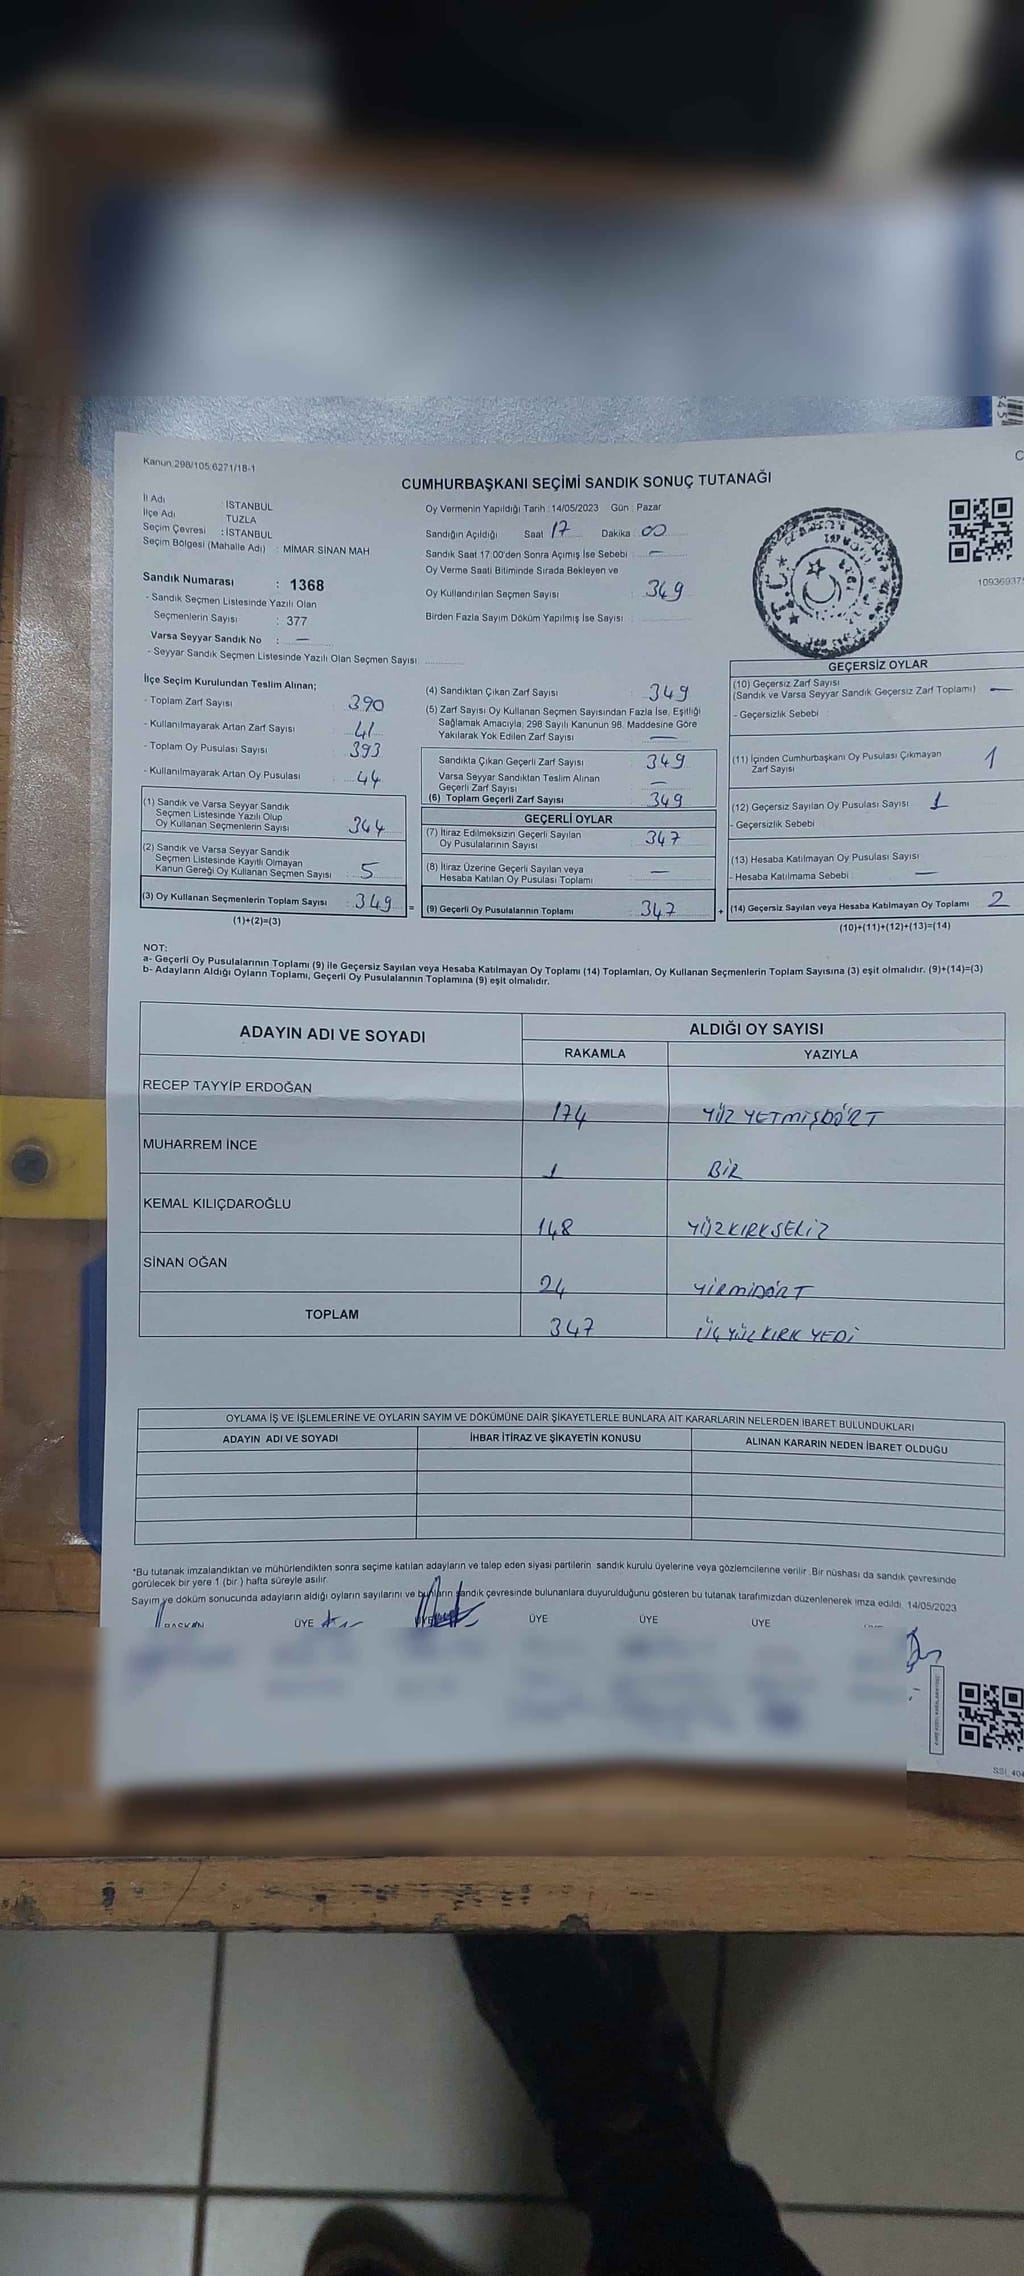 Kanun 298/105 6271/18-1
CUMHURBAŞKANI SEÇİMİ SANDIK SONUÇ TUTANAĞI
İl Adı : İSTANBUL
İlçe Adı : TUZLA
Seçim Çevresi : İSTANBUL
Seçim Bölgesi (Mahalle Adı) : MİMAR SİNAN MAH
Sandık Numarası : 1368
- Sandık Seçmen Listesinde Yazılı Olan
Seçmenlerin Sayısı : 377
Varsa Seyyar Sandık No : —
- Seyyar Sandık Seçmen Listesinde Yazılı Olan Seçmen Sayısı
Oy Vermenin Yapıldığı Tarih : 14/05/2023 Gün : Pazar
Sandığın Açıldığı Saat 17 Dakika : 00
Sandık Saat 17.00'den Sonra Açımış İse Sebebi : —
Oy Verme Saati Bitiminde Sırada Bekleyen ve
Oy Kullandırılan Seçmen Sayısı : 349
Birden Fazla Sayım Döküm Yapılmış İse Sayısı :
T.C.
İlçe Seçim Kurulundan Teslim Alınan;
- Toplam Zarf Sayısı : 390
- Kullanılmayarak Artan Zarf Sayısı : 41
- Toplam Oy Pusulası Sayısı : 393
- Kullanılmayarak Artan Oy Pusulası : 44
(1) Sandık ve Varsa Seyyar Sandık
Seçmen Listesinde Yazılı Olup
Oy Kullanan Seçmenlerin Sayısı : 344
(2) Sandık ve Varsa Seyyar Sandık
Seçmen Listesinde Kayıtlı Olmayan
Kanun Gereği Oy Kullanan Seçmen Sayısı : 5
(3) Oy Kullanan Seçmenlerin Toplam Sayısı : 349 =
(1)+(2)=(3)
(4) Sandıktan Çıkan Zarf Sayısı : 349
(5) Zarf Sayısı Oy Kullanan Seçmen Sayısından Fazla İse, Eşitliği
Sağlamak Amacıyla, 298 Sayılı Kanunun 98. Maddesine Göre
Yakılarak Yok Edilen Zarf Sayısı : —
Sandıkta Çıkan Geçerli Zarf Sayısı : 349
Varsa Seyyar Sandıktan Teslim Alınan
Geçerli Zarf Sayısı : —
(6) Toplam Geçerli Zarf Sayısı : 349
GEÇERLİ OYLAR
(7) İtiraz Edilmeksizin Geçerli Sayılan
Oy Pusulalarının Sayısı : 347
(8) İtiraz Üzerine Geçerli Sayılan veya
Hesaba Katılan Oy Pusulası Toplamı : —
(9) Geçerli Oy Pusulalarının Toplamı : 347 +
GEÇERSİZ OYLAR
(10) Geçersiz Zarf Sayısı
(Sandık ve Varsa Seyyar Sandık Geçersiz Zarf Toplamı) —
- Geçersizlik Sebebi :
(11) İçinden Cumhurbaşkanı Oy Pusulası Çıkmayan
Zarf Sayısı 1
(12) Geçersiz Sayılan Oy Pusulası Sayısı 1
- Geçersizlik Sebebi
(13) Hesaba Katılmayan Oy Pusulası Sayısı
- Hesaba Katılmama Sebebi : —
(14) Geçersiz Sayılan veya Hesaba Katılmayan Oy Toplamı 2
(10)+(11)+(12)+(13)=(14)
NOT:
a- Geçerli Oy Pusulalarının Toplamı (9) ile Geçersiz Sayılan veya Hesaba Katılmayan Oy Toplamı (14) Toplamları, Oy Kullanan Seçmenlerin Toplam Sayısına (3) eşit olmalıdır. (9)+(14)=(3)
b- Adayların Aldığı Oyların Toplamı, Geçerli Oy Pusulalarının Toplamına (9) eşit olmalıdır.
ADAYIN ADI VE SOYADI ALDIĞI OY SAYISI
RAKAMLA YAZIYLA
RECEP TAYYİP ERDOĞAN 174 YÜZ YETMİŞDÖRT
MUHARREM İNCE 1 BİR
KEMAL KILIÇDAROĞLU 148 YÜZKIRKSEKİZ
SİNAN OĞAN 24 YİRMİDÖRT
TOPLAM 347 ÜÇYÜZ KIRK YEDİ
OYLAMA İŞ VE İŞLEMLERİNE VE OYLARIN SAYIM VE DÖKÜMÜNE DAİR ŞİKAYETLERLE BUNLARA AİT KARARLARIN NELERDEN İBARET BULUNDUKLARI
ADAYIN ADI VE SOYADI İHBAR İTİRAZ VE ŞİKAYETİN KONUSU ALINAN KARARIN NEDEN İBARET OLDUĞU
*Bu tutanak imzalandıktan ve mühürlendikten sonra seçime katılan adayların ve talep eden siyasi partilerin sandık kurulu üyelerine veya gözlemcilerine verilir. Bir nüshası da sandık çevresinde
görülecek bir yere 1 (bir) hafta süreyle asılır.
Sayım ve döküm sonucunda adayların aldığı oyların sayılarını ve bunların sandık çevresinde bulunanlara duyurulduğunu gösteren bu tutanak tarafımızdan düzenlenerek imza edildi. 14/05/2023
BAŞKAN ÜYE ÜYE ÜYE ÜYE ÜYE